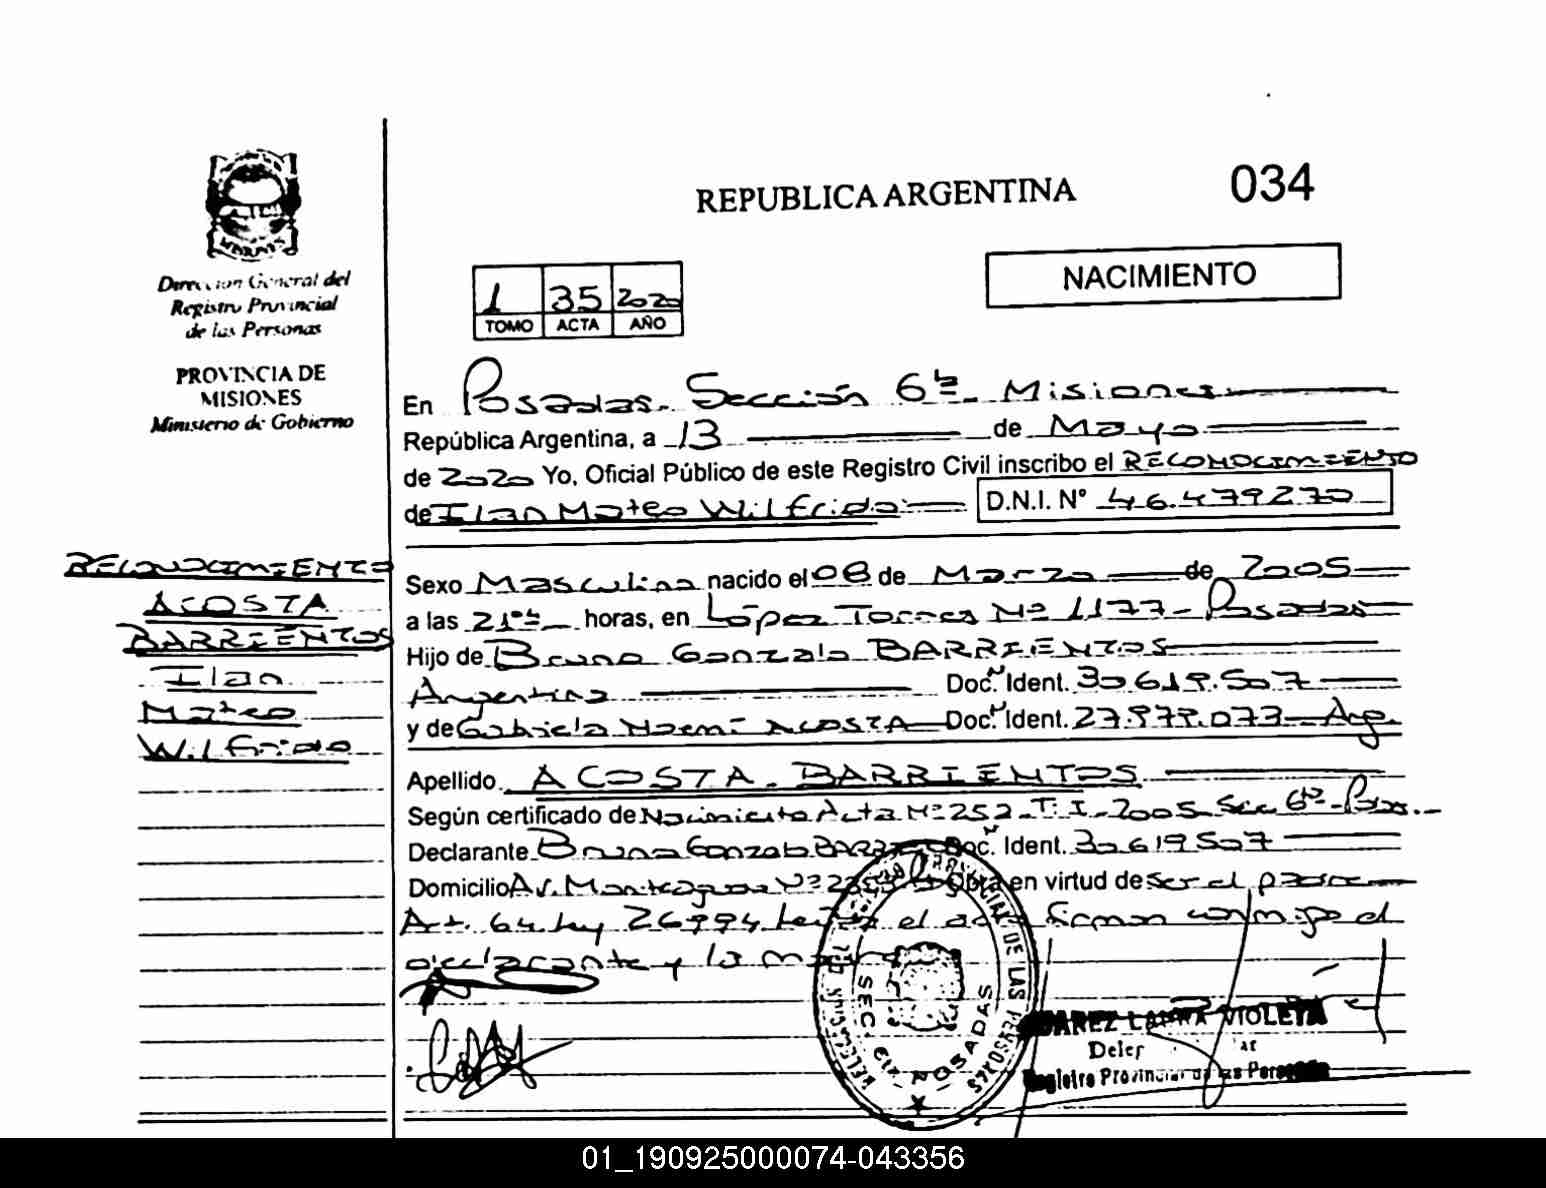 034
REPUBLICA ARGENTINA
NACIMIENTO
MISIONES
Direccion General del
Registro Provincial
de las Personas
PROVINCIA DE
MISIONES
Ministerio de Gobierno
1 35 2020
TOMO ACTA AÑO
En Posadas. Sección 6ta. Misiones
República Argentina, a 13 de Mayo
de 2020 Yo, Oficial Público de este Registro Civil inscribo el RECONOCIMIENTO
de Ilan Mateo Wilfrido D.N.I. Nº 46.479270
RECONOCIMIENTO
ACOSTA
BARRIENTOS
Ilan
Mateo
Wilfrido
Sexo Masculino nacido el 08 de Marzo de 2005
a las 21 horas, en López Torres Nº 1177 - Posadas
Hijo de Bruno Gonzalo BARRIENTOS
Argentino Doc. Ident. 30.619.507
y de Gabriela Noemí ACOSTA Doc. Ident. 27.979.073 - Arg.
Apellido ACOSTA BARRIENTOS
Según certificado de Nacimiento Acta Nº 252 - T: I - 2005 - Sec 6ta - Pdas.
Declarante Bruno Gonzalo Doc. Ident. 30619507
Domicilio Av. Nº en virtud de ser el padre
Art. 64 Ley 26994 Leída el acta firman conmigo el
declarante y la
REGISTRO PROVINCIAL DE LAS PERSONAS
SEC. 6ta POSADAS
LAURA VIOLETA
Registro Provincial de las Personas
01_190925000074-043356